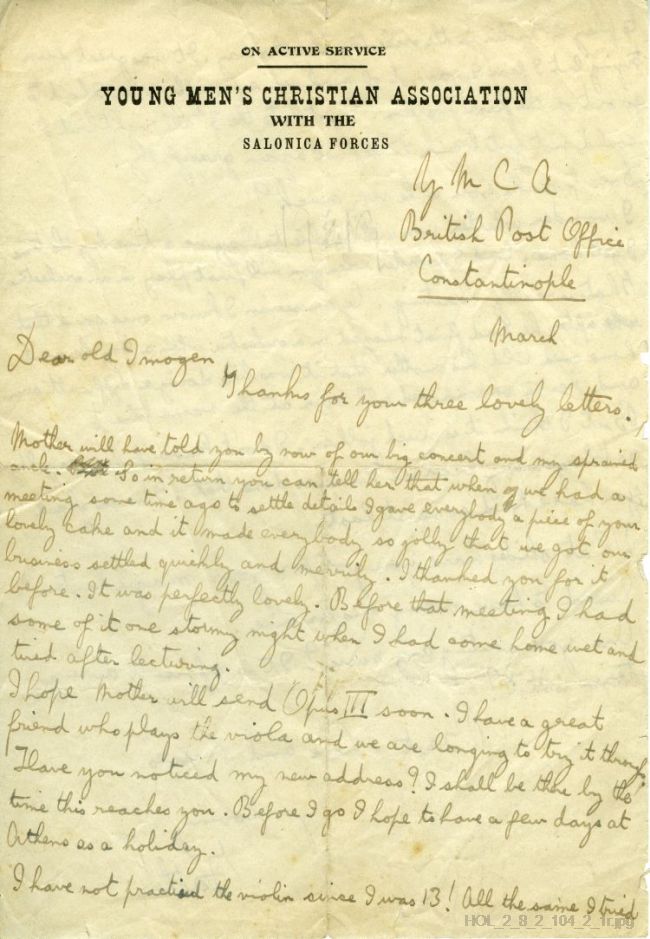 ON ACTIVE SERVICE
YOUNG MEN'S CHRISTIAN ASSOCIATION
WITH THE
SALONICA FORCES
Y M C A
British Post Office
Constantinople
March
Dear old Imogen
Thanks for your three lovely letters.
Mother will have told you by now of our big concert and my sprained
ancle. So in return you can tell her that when we had a
meeting some time ago to settle details I gave everybody a piece of your
lovely cake and it made everybody so jolly that we got our
business settled quickly and merrily. I thanked you for it
before. It was perfectly lovely. Before that meeting I had
some of it one stormy night when I had come home wet and
tired after lecturing.
I hope Mother will send Opus III soon. I have a great
friend who plays the viola and we are longing to try it through
Have you noticed my new address? I shall be there by the
time this reaches you. Before I go I hope to have a few days at
Athens as a holiday.
I have not practised the violin since I was 13! All the same I tried
HOL_2_8_2_104_2_1r.jpg